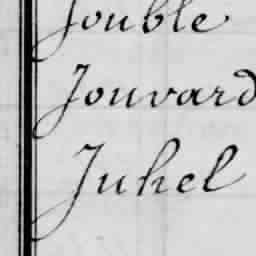 Jouble
Jouvard
Juhel